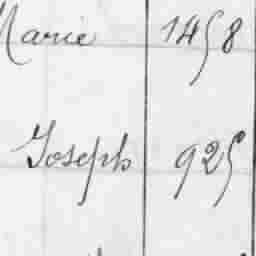 Marie 1458
Joseph 925